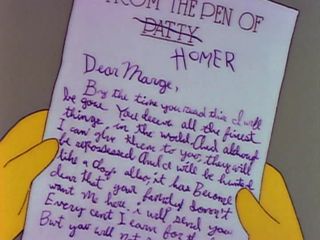 FROM THE PEN OF
PATTY
HOMER
Dear Marge,
By the time you read this I will
be gone. You deserve all the finest
things in the world And although
I can give them to you, they will
be repossessed And I will be hunted
like a dog. also it has Become
clear that your family doesn't
want me here. i will send you
Every cent I earn for th
But you will not